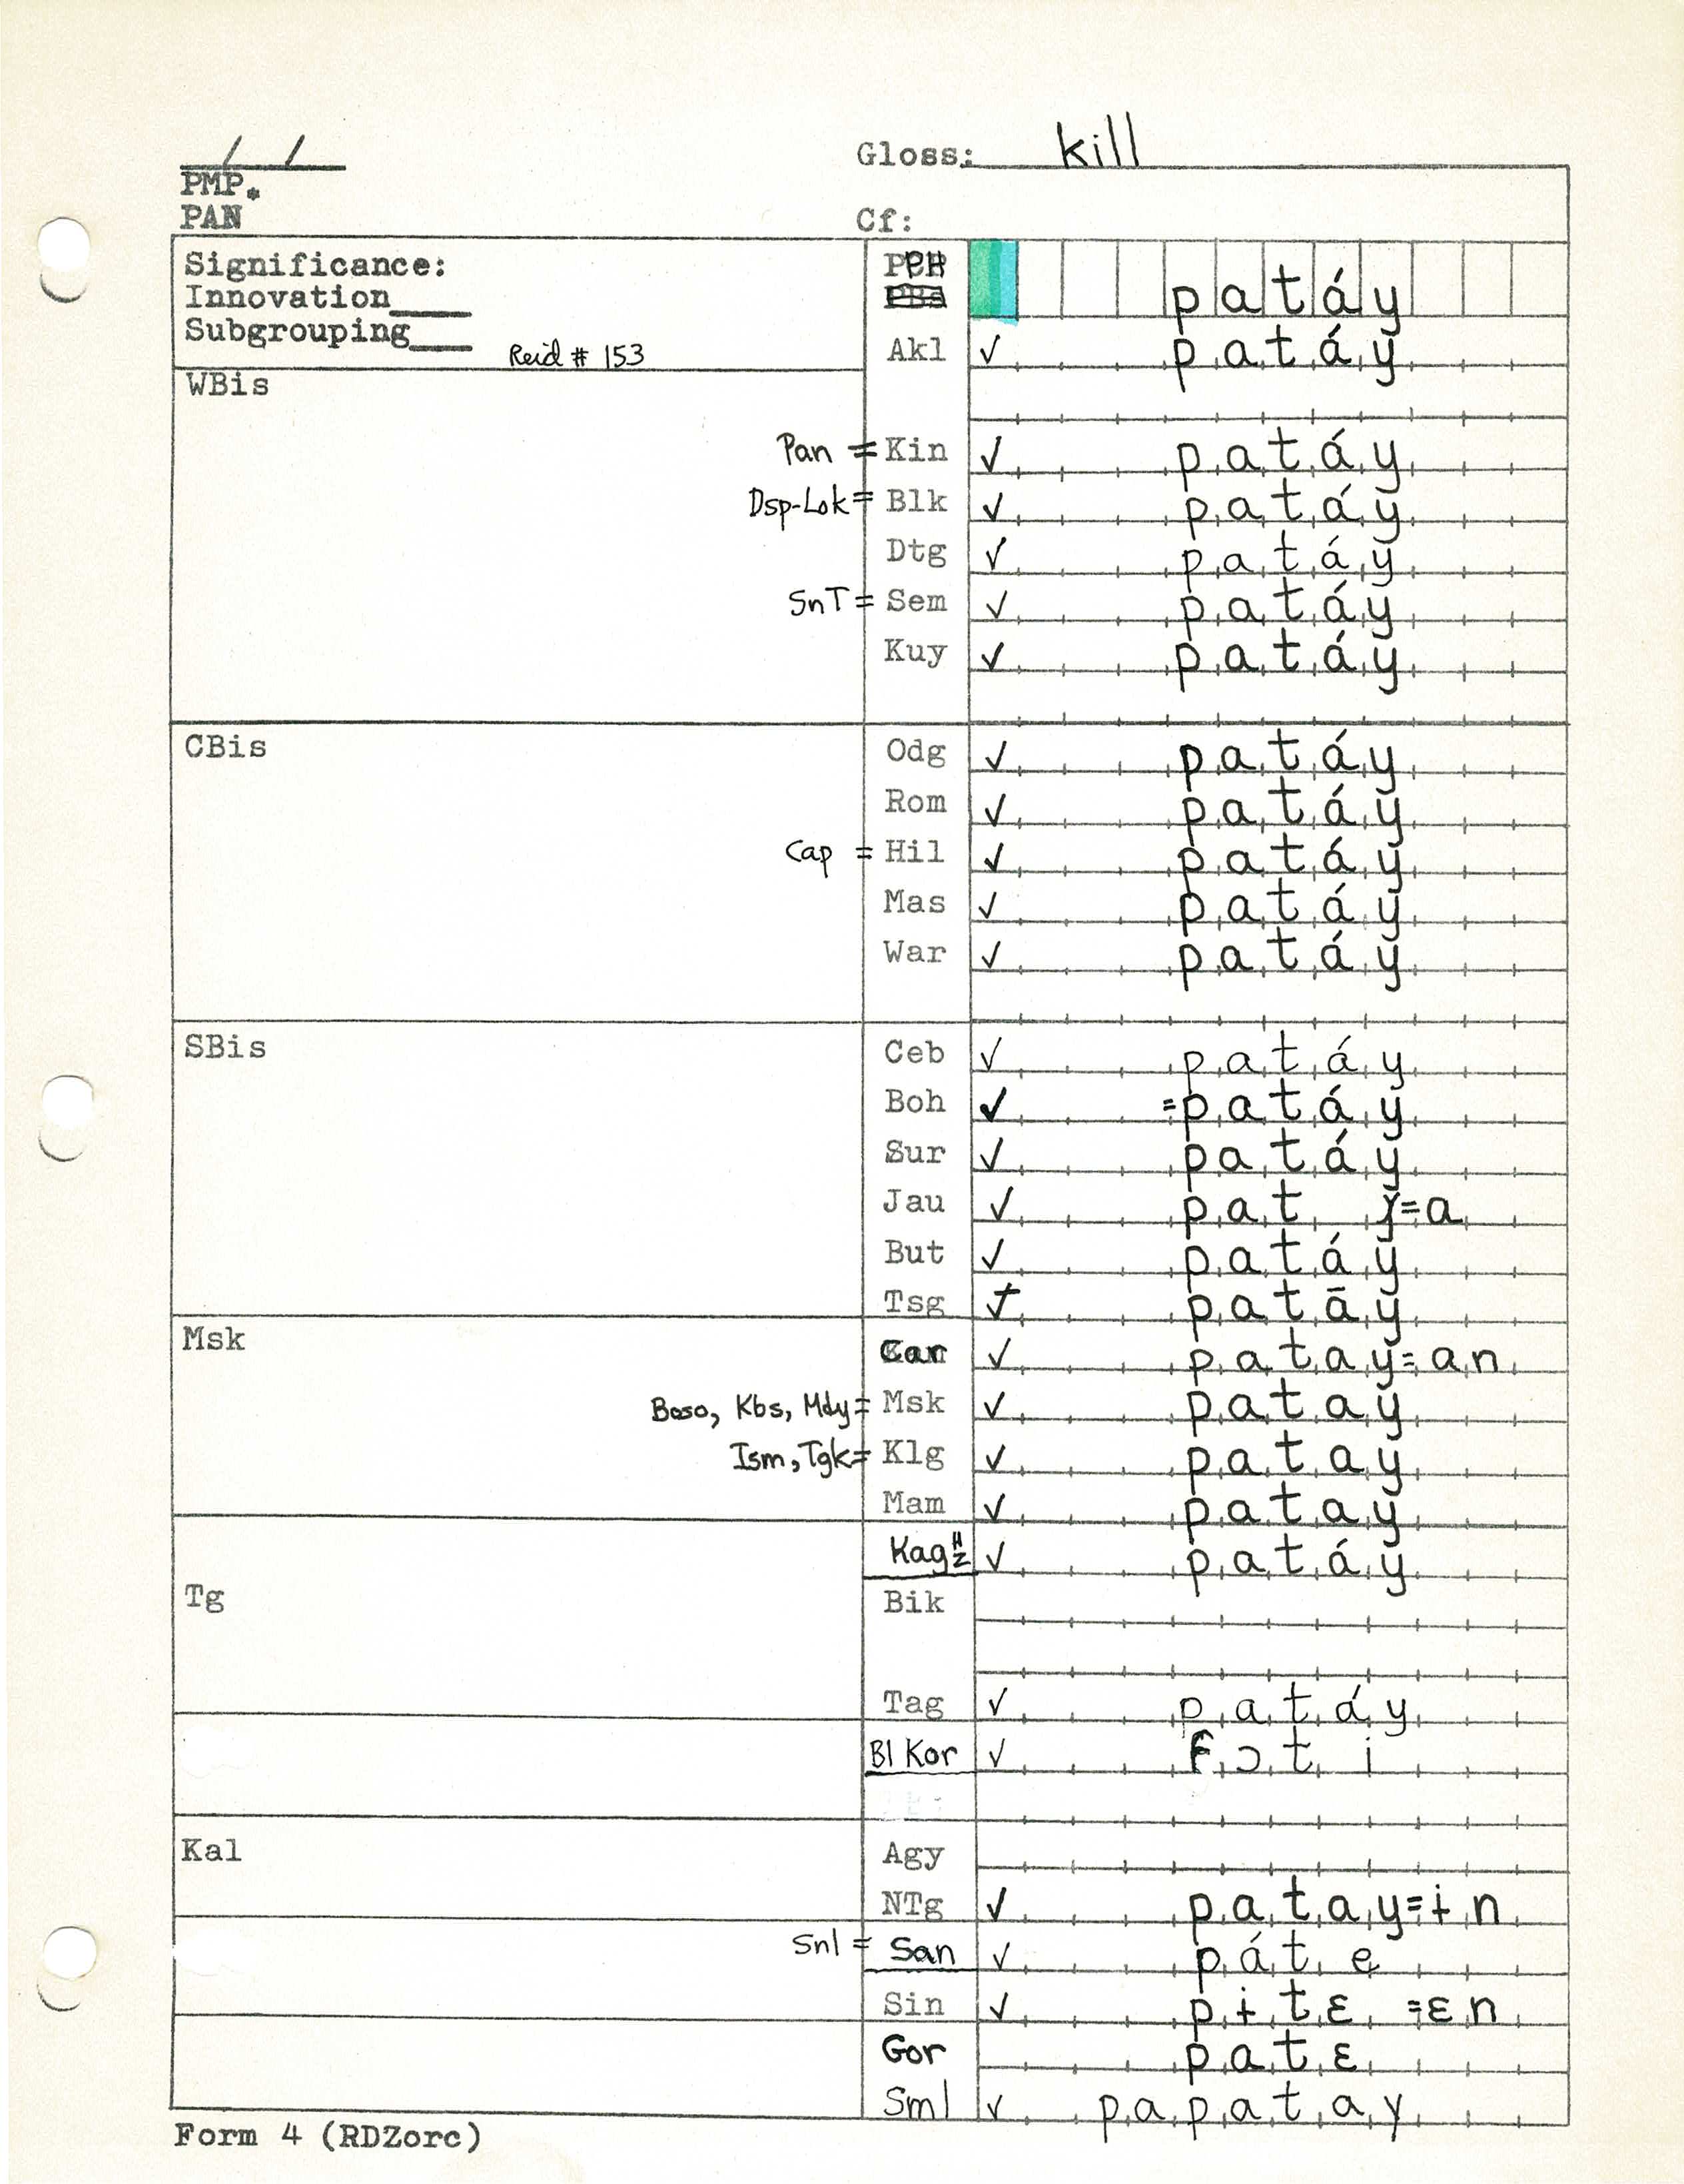 / / Gloss: kill
PMP*
PAN Cf:
Significance: PH patáy
Innovation____
Subgrouping____ Reid # 153
Akl ✓ patáy
WBis
Pan = Kin ✓ patáy
Dsp-Lok = Blk ✓ patáy
Dtg ✓ patáy
SnT = Sem ✓ patáy
Kuy ✓ patáy
CBis Odg ✓ patáy
Rom ✓ patáy
Cap = Hil ✓ patáy
Mas ✓ patáy
War ✓ patáy
SBis Ceb ✓ patáy
Boh ✓ =patáy
Sur ✓ patáy
Jau ✓ pat ɟ=a
But ✓ patáy
Tsg ✓ patāy
Msk Car ✓ patay=an
Boso, Kbs, Mdy = Msk ✓ patay
Ism, Tgk = Klg ✓ patay
Mam ✓ patay
Kag ✓ patáy
Tg Bik
Tag ✓ patáy
Bl Kor ✓ fɔt i
Kal Agy
NTg ✓ patay=ɨn
Snl = San ✓ páte
Sin ✓ pɨtɛ =ɛn
Gor patɛ
Sml ✓ papatay
Form 4 (RDZorc)